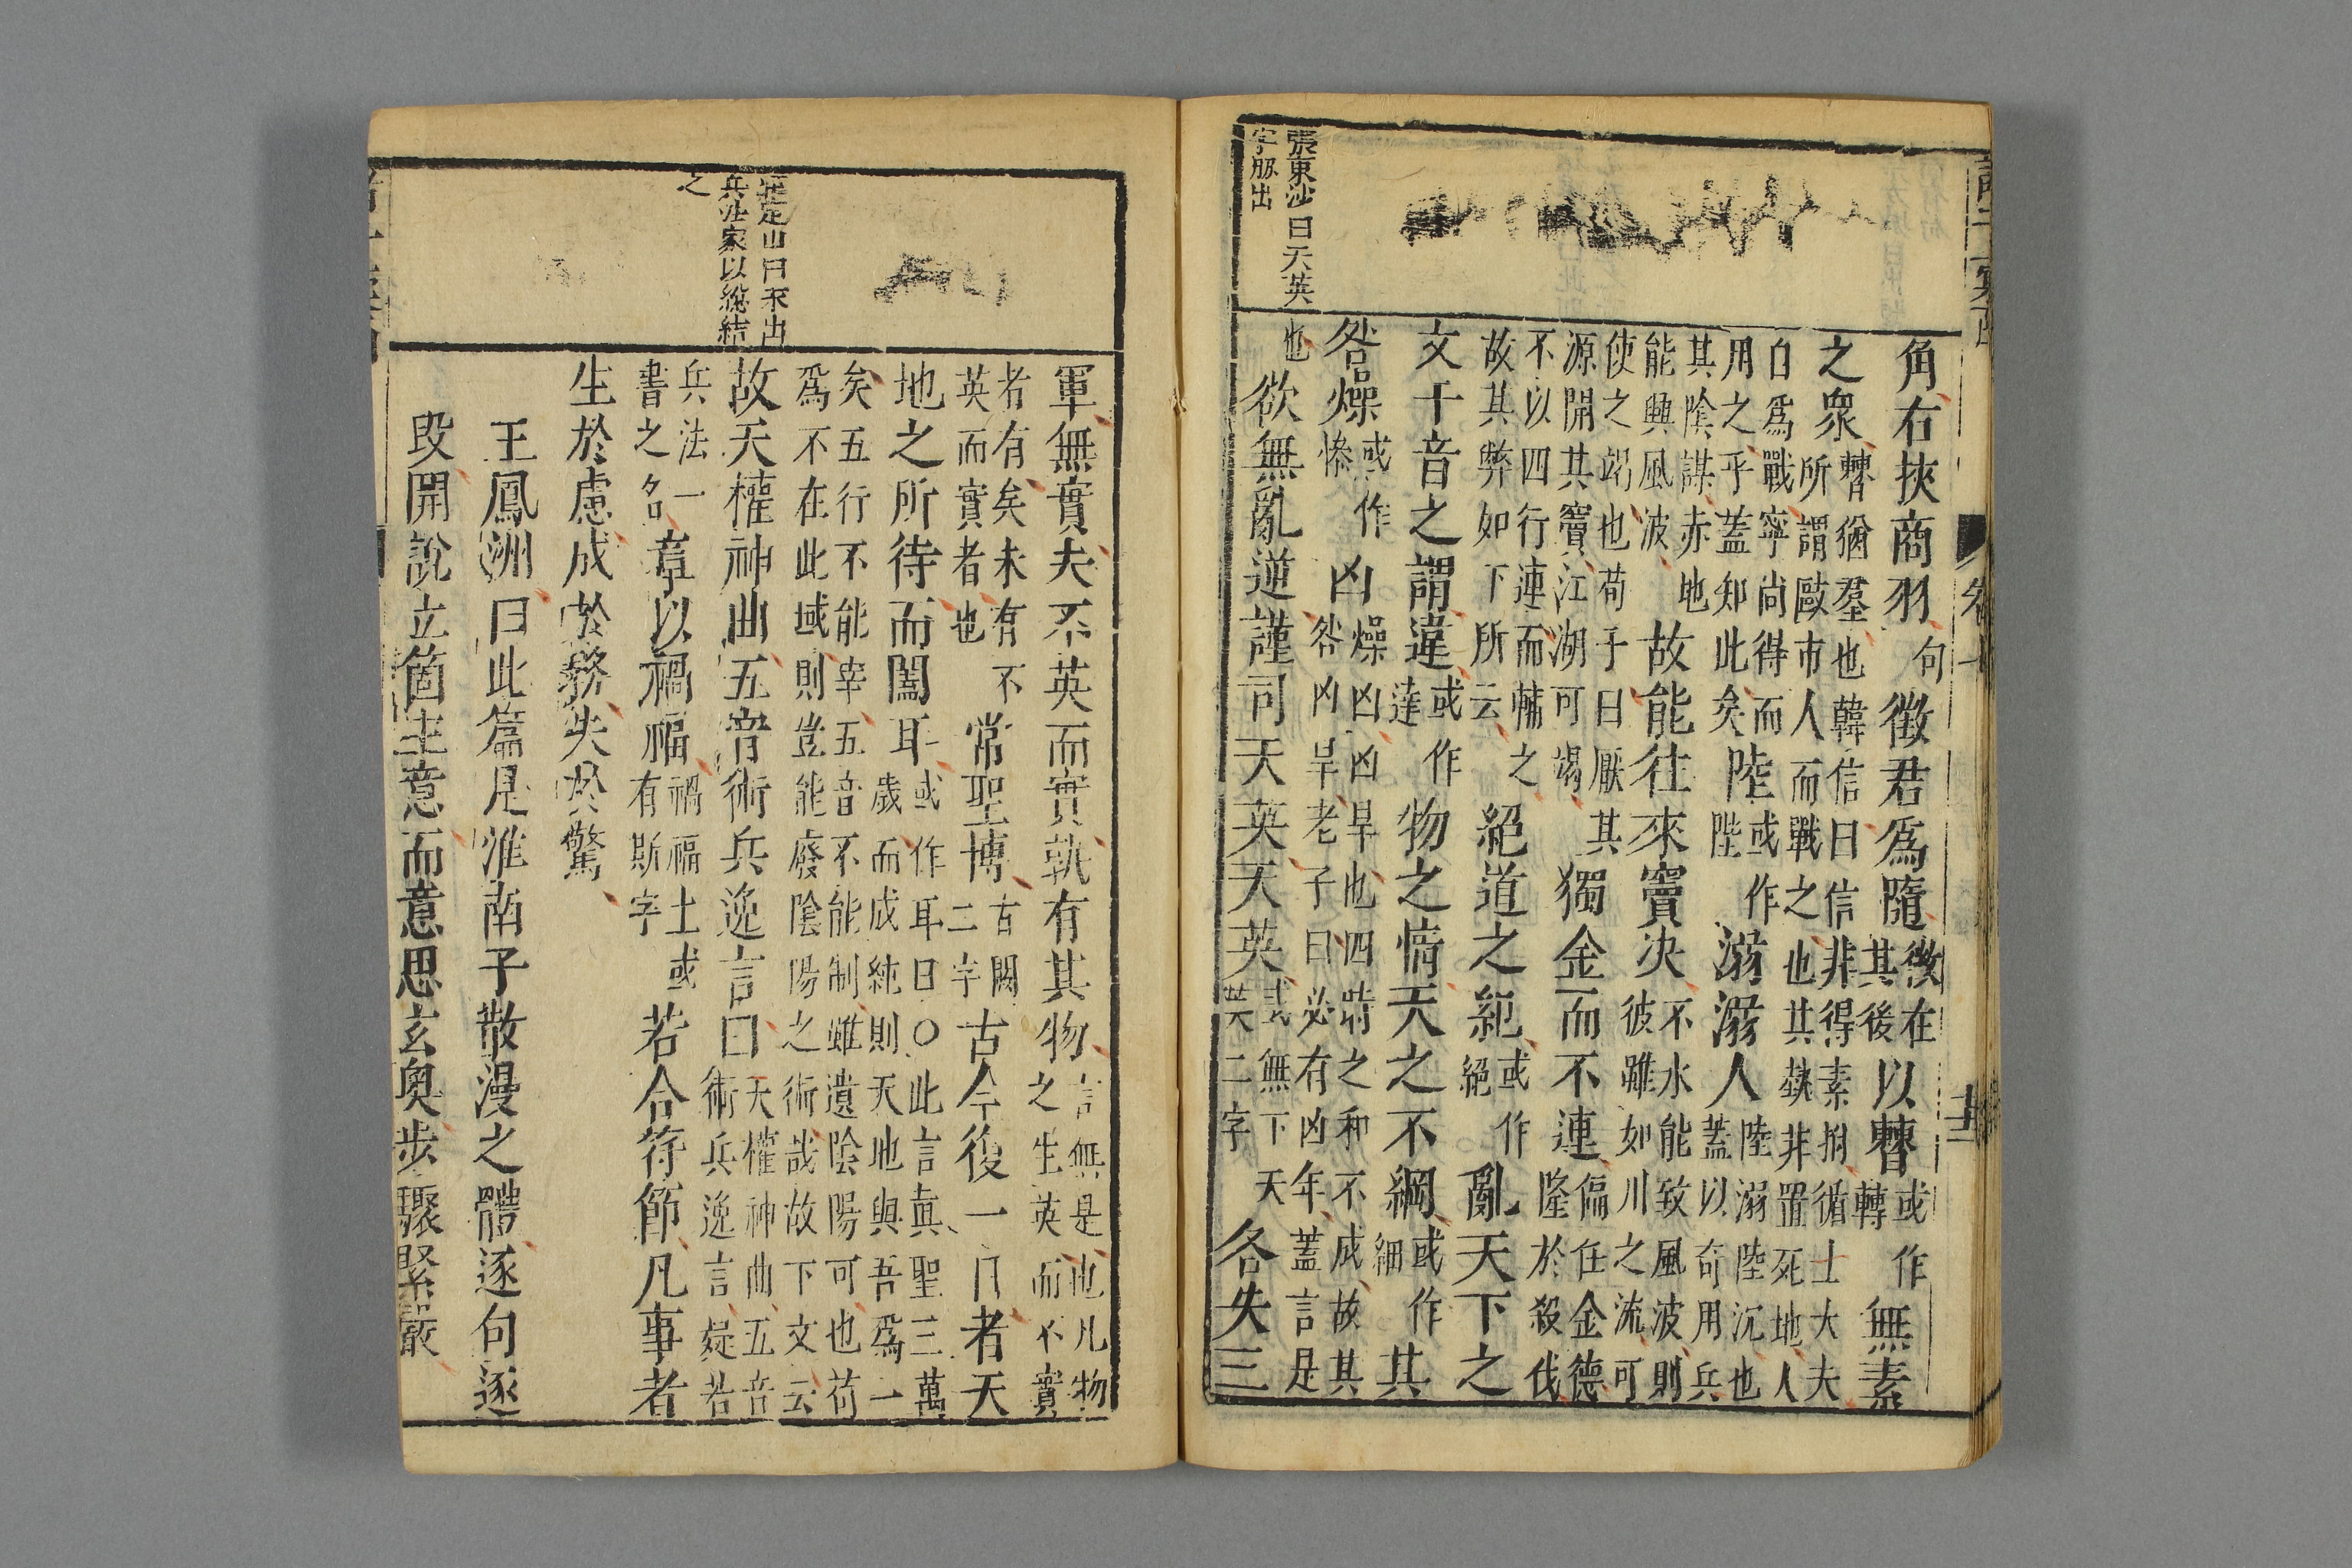 張東沙曰天英
字脈出
角右挾商羽句徵君爲隨徵在其後以瞽或作轉無素
之衆瞽猶羣也韓信曰信非得素拊循士大夫所謂毆市人而戰之也其埶非置死地人
自爲戰寧尚得而用之乎蓋知此矣陸或作陛溺溺人陸溺陸沉也蓋以奇用兵
其陰謀赤地能興風波故能往來竇决不水能致風波則彼雖如川之流可
使之竭也苟于曰厭其源開其竇江湖可竭獨金而不連偏任金德隆於殺伐
不以四行連而韛之故其弊如下所云絕道之紀或作絕亂天下之
文干音之謂違或作達物之情天之不綱或作細其
咎燥或作慘凶燥凶凶旱也四時之和不成故其咎凶旱老子曰必有凶年蓋言是
也欲無亂逆謹司天英天英或無下英二字天各失三
唐荊山曰不出
兵法家以總結
之
軍無實夫不英而實孰有其物言無是也凡物之生英而不實
者有矣未有不英而實者也常聖博古闕二字古今復一日者天
地之所待而闔耳或作耳曰○此言眞聖三萬歲而成純則天地與吾爲一
矣五行不能宰五音不能制雖遺陰陽可也苟爲不在此域則豈能廢陰陽之術哉故下文云
故天權神曲五音術兵逸言曰天權神曲五音術兵逸言疑若
兵法一書之名章以禍福禍福土或有斯字若合符節凡事者
生於慮成於務失於驚
王鳳洲曰此篇是淮南子散漫之體逐句逐
段開說立箇主意而意思玄奥步驟緊嚴